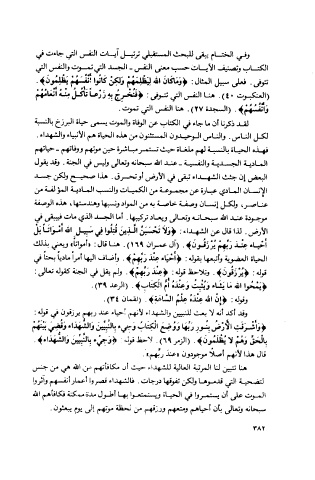 وفي الختام يبقى للبحث المستقبلي ترتيل آيات النفس التي جاءت في
الكتاب وتصنيف الآيات حسب معنى النفس ـ الجسد التي تموت والنفس التي
تتوفى. فعلى سبيل المثال: ﴿وَمَا كَانَ اللَّهُ لِيَظْلِمَهُمْ وَلَكِنْ كَانُوا أَنْفُسَهُمْ يَظْلِمُونَ﴾.
(العنكبوت ٤٠). هنا النفس التي تتوفى: ﴿فَنُخْرِجُ بِهِ زَرْعاً تَأْكُلُ مِنْهُ أَنْعَامُهُمْ
وَأَنْفُسُهُمْ﴾. (السجدة ٢٧). هنا النفس التي تموت.
لقد ذكرنا أن ما جاء في الكتاب عن الوفاة والموت يسمى حياة البرزخ بالنسبة
لكل الناس. والناس الوحيدون المستثنون من هذه الحياة هم الأنبياء والشهداء.
فهذه الحياة بالنسبة لهم ملغاة حيث تستمر مباشرة حين موتهم ووفاتهم ـ حياتهم
المادية الجسدية والنفسية ـ عند الله سبحانه وتعالى وليس في الجنة. وقد يقول
البعض إن جثث الشهداء تبقى في الأرض أو تحرق. هذا صحيح ولكن جسد
الإنسان المادي عبارة عن مجموعة من الكميات والنسب المادية المؤلفة من
عناصر، ولكل إنسان وصفة خاصة به من المواد ونسبها وهندستها، هذه الوصفة
موجودة عند الله سبحانه وتعالى ويعاد تركيبها. أما الجسد الذي مات فيبقى في
الأرض. لذا قال عن الشهداء: ﴿وَلَا تَحْسَبَنَّ الَّذِينَ قُتِلُوا فِي سَبِيلِ اللَّهِ أَمْوَاتاً بَلْ
أَحْيَاء عِنْدَ رَبِّهِمْ يُرْزَقُونَ﴾. (آل عمران ١٦٩). هنا قال: «أمواتاً» ويعني بذلك
الحياة العضوية وأتبعها بقوله: ﴿أَحْيَاء عِنْدَ رَبِّهِمْ﴾. وأضاف إليها أمراً مادياً بحتاً في
قوله: ﴿يُرْزَقُونَ﴾. ونلاحظ قوله: ﴿عِنْدَ رَبِّهِمْ﴾. ولم يقل في الجنة كقوله تعالى:
﴿يَمْحُوا اللَّهُ مَا يَشَاء وَيُثْبِتُ وَعِنْدَهُ أُمُّ الْكِتَابِ﴾. (الرعد ٣٩).
وقوله: ﴿إِنَّ اللَّهَ عِنْدَهُ عِلْمُ السَّاعَةِ﴾. (لقمان ٣٤).
وقد أكد أنه لا بعث للنبيين والشهداء لأنهم أحياء عند ربهم يرزقون في قوله:
﴿وَأَشْرَقَتِ الْأَرْضُ بِنُورِ رَبِّهَا وَوُضِعَ الْكِتَابُ وَجِيءَ بِالنَّبِيِّينَ وَالشُّهَدَاءِ وَقُضِيَ بَيْنَهُمْ
بِالْحَقِّ وَهُمْ لَا يُظْلَمُونَ﴾. (الزمر ٦٩). لاحظ قوله: ﴿وَجِيءَ بِالنَّبِيِّينَ وَالشُّهَدَاءِ﴾.
قال هذا لأنهم أصلاً موجودون «عند ربهم».
هنا تتبين لنا المرتبة العالية للشهداء حيث أن مكافأتهم من الله هي من جنس
تضحية التي قدموها ولكن تفوقها درجات. فالشهداء قصروا أعمار أنفسهم وآثروا
الموت على أن يستمروا في الحياة ويستمتعوا بها أطول مدة ممكنة فكافأهم الله
سبحانه وتعالى بأن أحياهم ومتعهم ورزقهم من لحظة موتهم إلى يوم يبعثون.
٣٨٢